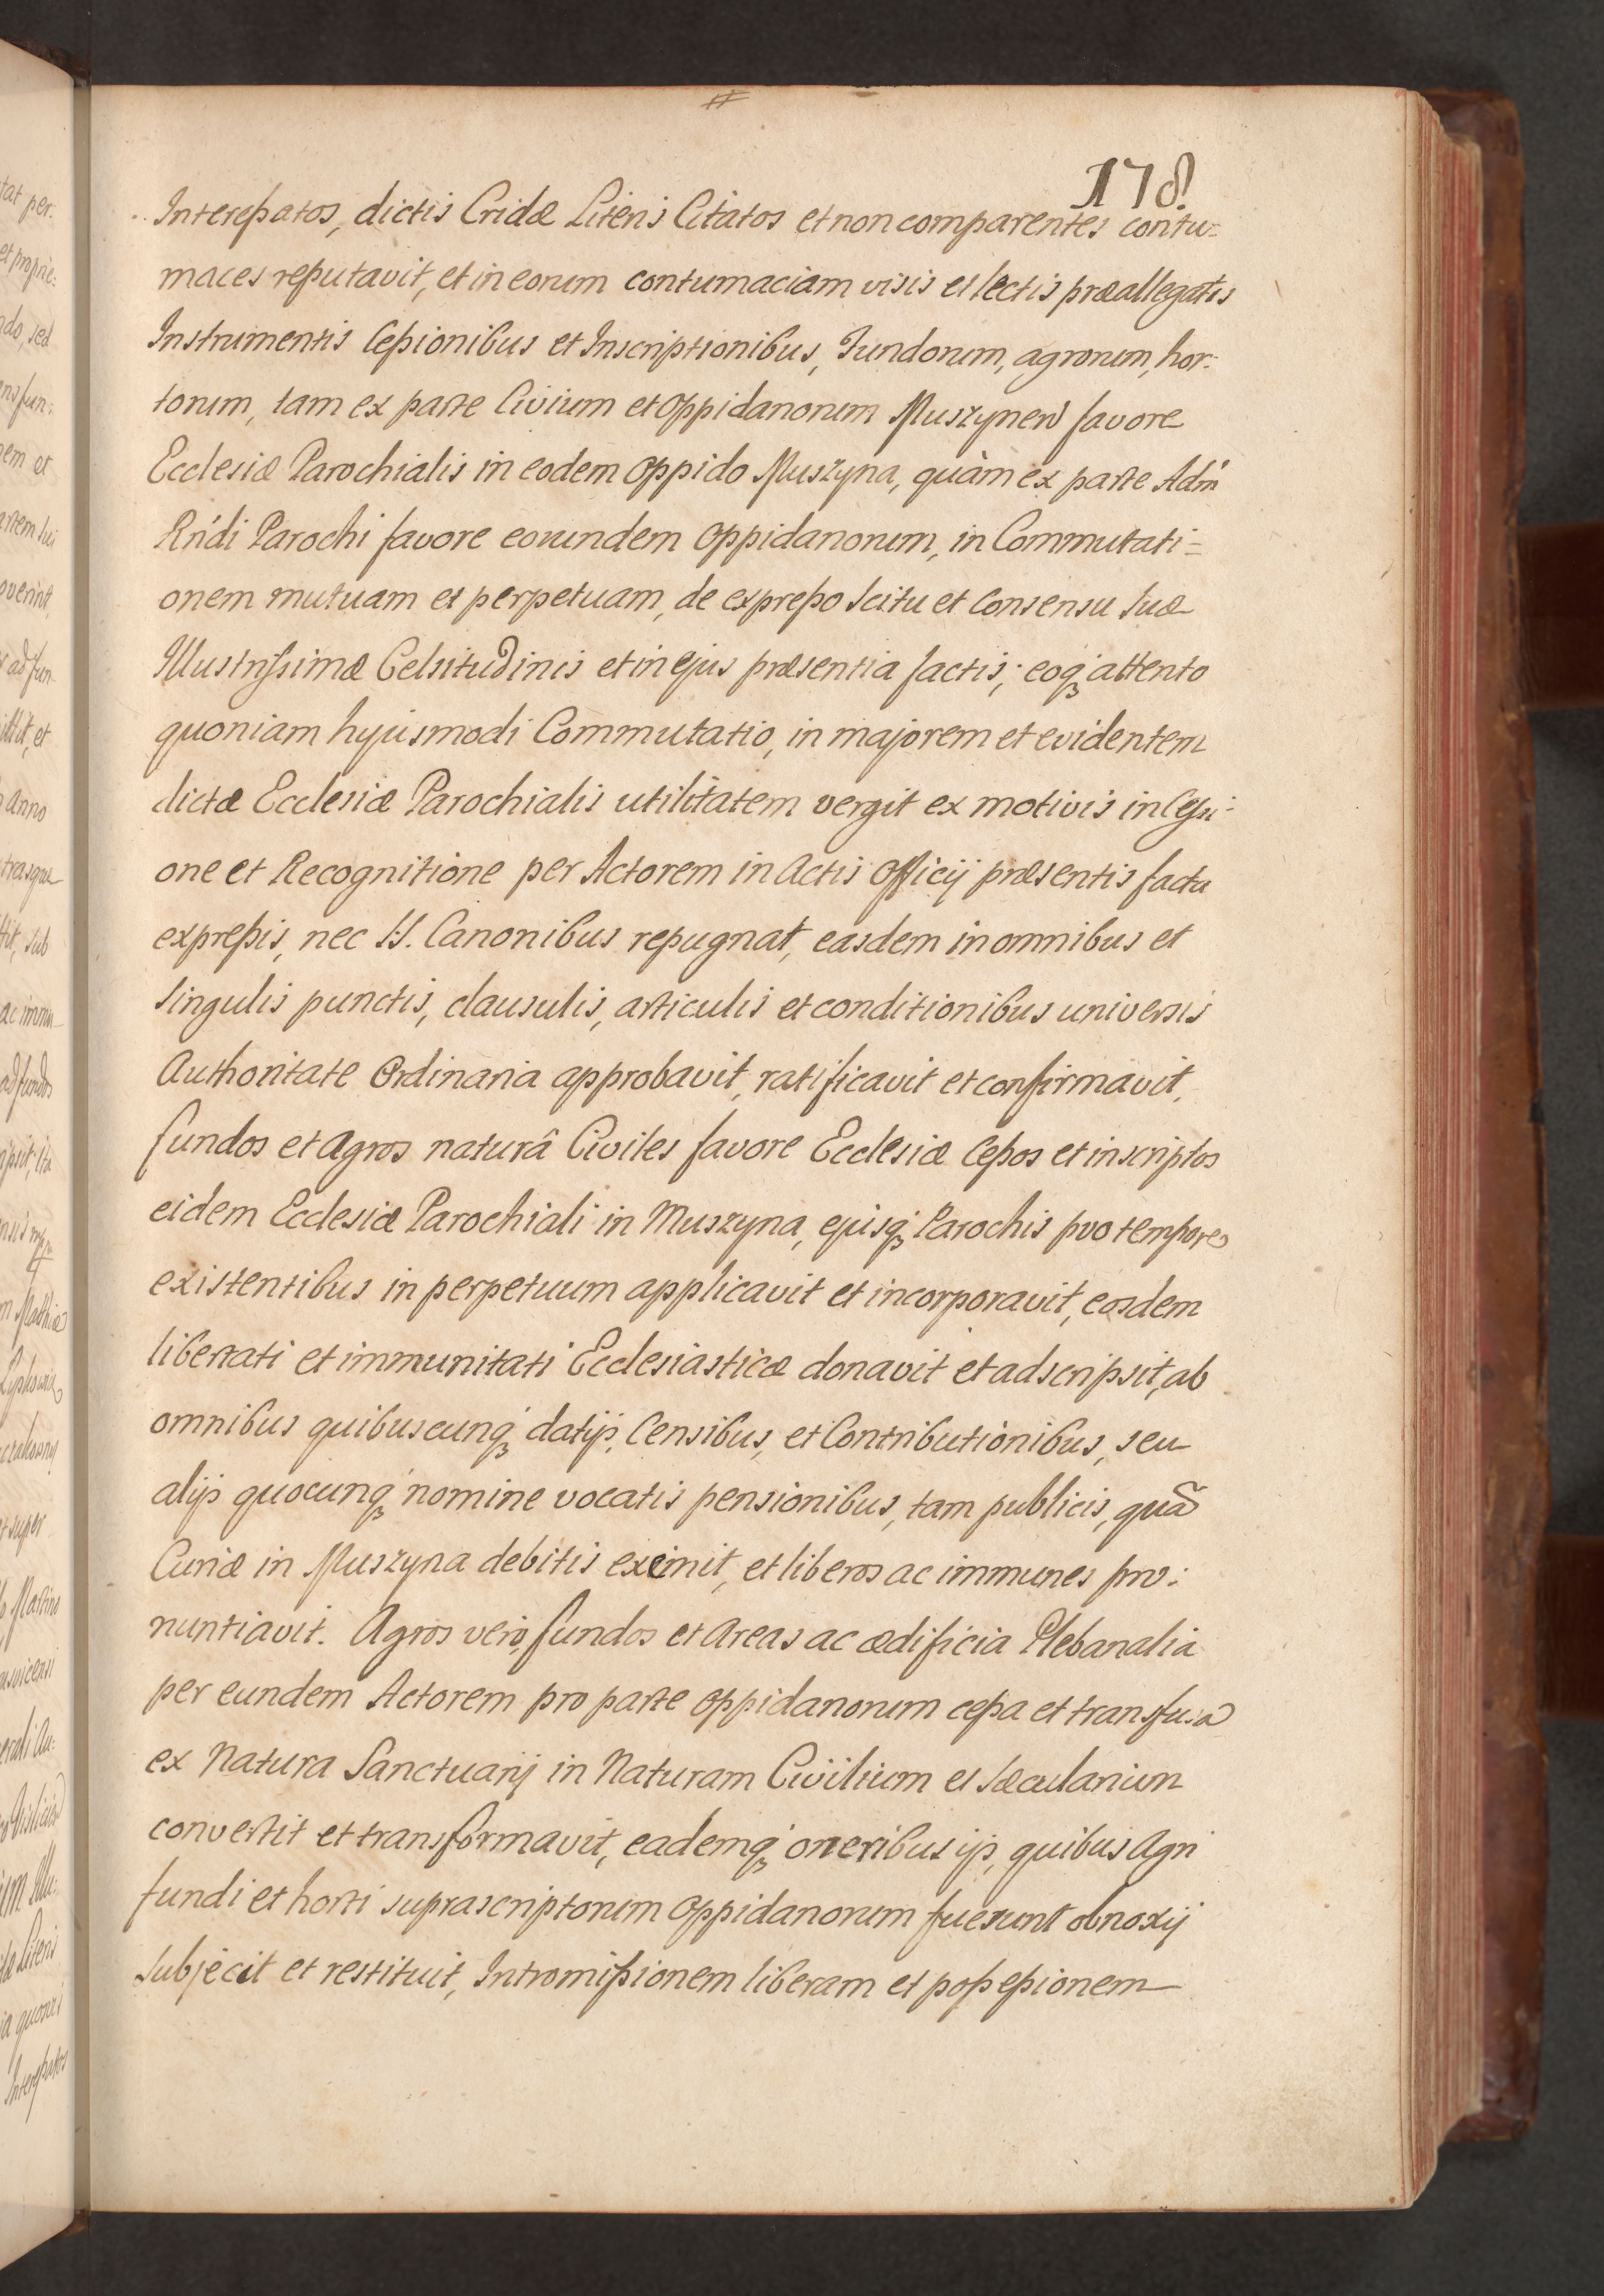 178.
Interessatos, dictis Cridæ Literis Citatos et non comparentes contu=
maces reputavit, et in eorum contumaciam visis et lectis præallegatis
Instrumentis Cessionibus et Inscriptionibus, Fundorum, agrorum, hor:
torum, tam ex parte Civium et Oppidanorum Muszynen favore
Ecclesiæ Parochialis in eodem Oppido Muszyna, quàm ex parte Adm
Rńdi Parochi favore eorundem Oppidanorum, in Commutati=
onem mutuam et perpetuam, de expresso Scitu et Consensu Suæ
Illustrissimæ Celsitudinis et in ejus præsentia factis; eoq attento
quoniam hujusmodi Commutatio, in majorem et evidentem
dictæ Ecclesiæ Parochialis utilitatem vergit ex motivis in Cessi:
one et Recognitione per Actorem in Actis Officij præsentis facta
expressis, nec SS. Canonibus repugnat, easdem in omnibus et
Singulis punctis, clausulis, articulis et conditionibus universis
Authoritate Ordinaria approbavit, ratificavit et confirmavit,
fundos et Agros naturâ Civiles favore Ecclesiæ Cessos et inscriptos
eidem Ecclesiæ Parochiali in Muszyna, ejusq Parochis pro tempore
existentibus in perpetuum applicavit et incorporavit, eosdem
libertati et immunitati Ecclesiasticæ donavit et adscripsit, ab
omnibus quibuscunq datijs, Censibus, et Contributionibus, seu
alijs quocunq nomine vocatis pensionibus, tam publicis, quã
Curiæ in Muszyna debitis exemit, et liberos ac immunes pro:
nuntiavit. Agros verò, fundos et Areas ac ædificia Plebanalia
per eundem Actorem pro parte Oppidanorum cessa et transfusa
ex Natura Sanctuarij in Naturam Civilium et Sæcularium
convertit et transformavit, eademq oneribus ijs, quibus Agri
fundi et horti suprascriptorum Oppidanorum fuerunt obnoxij
Subjecit et restituit, Intromissionem liberam et possessionem